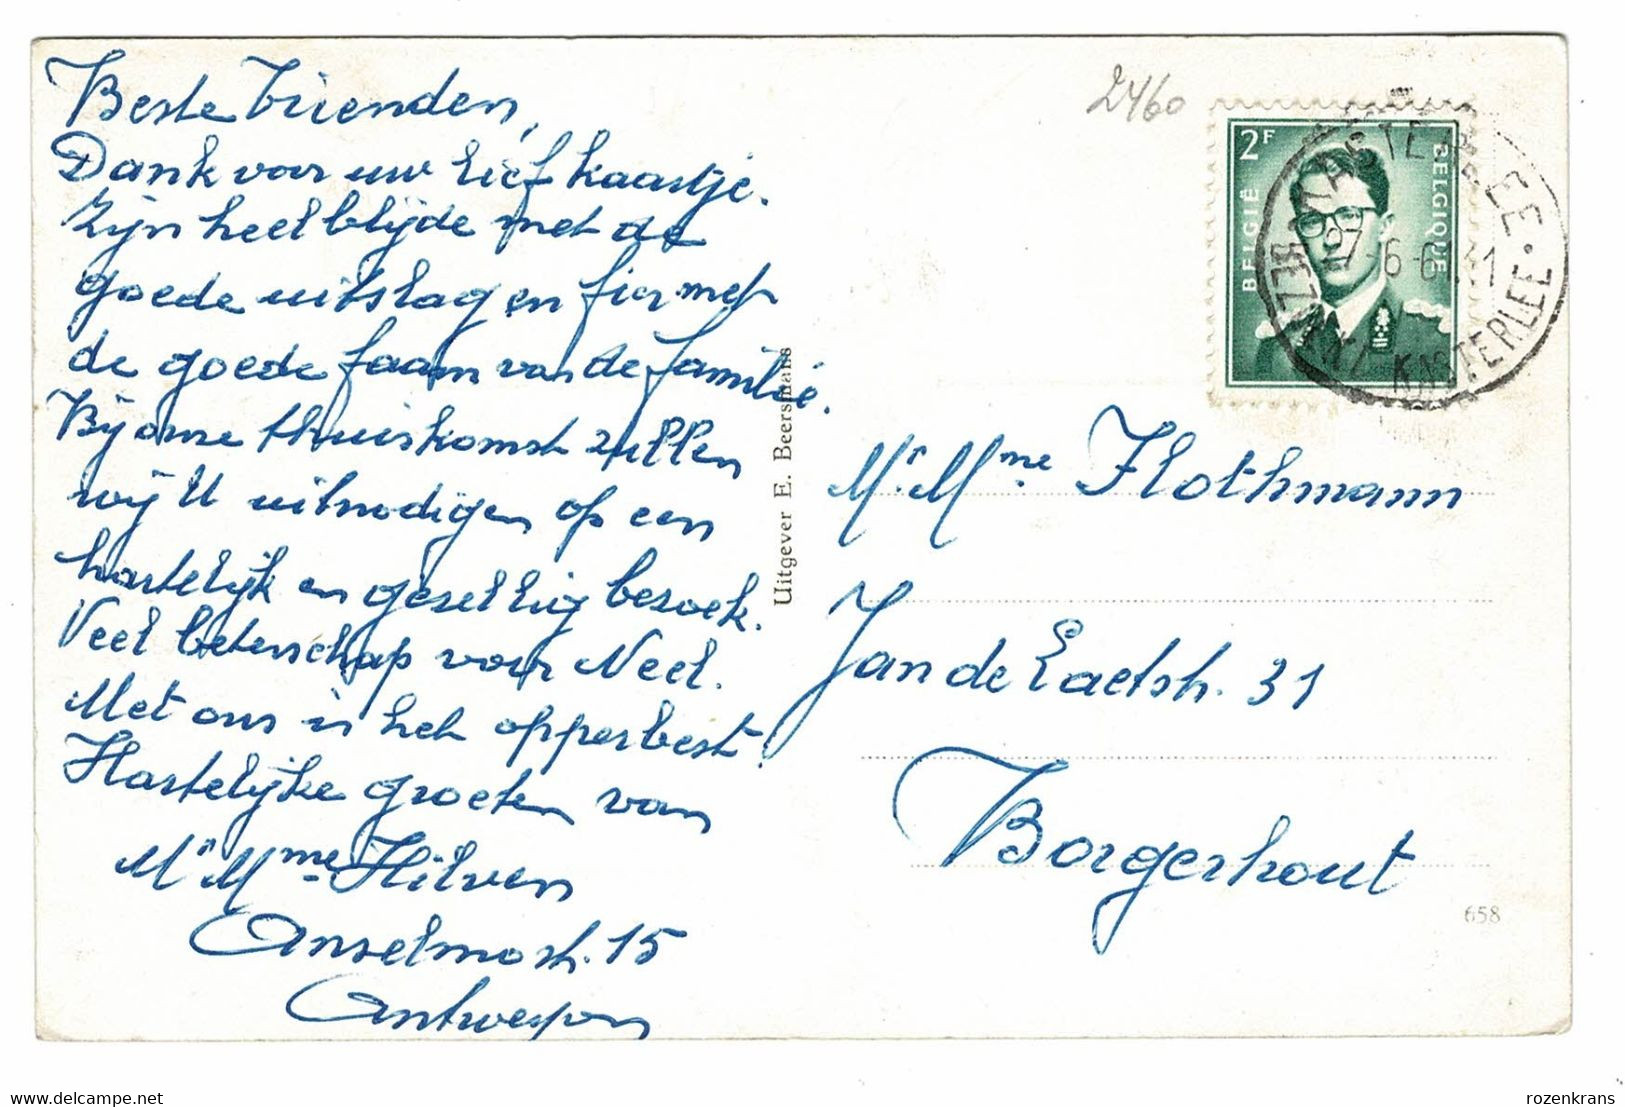 Beste Vrienden,
Dank voor uw lief kaartje.
Zijn heel blijde met de
goede uitslag en fier met
de goede faam van de familie.
Bij onze thuiskomst zullen
wij U uitnodigen op een
hartelijk en gesellig bezoek.
Veel beterschap voor Neel.
Met ons is het opperbest!
Hartelijke groeten van
Mr Mme Hilven
Anselmostr. 15
Antwerpen
Uitgever E. Beersmans
2460
2F
BELGIË
BELGIQUE
KASTERLEE
BEZOEKT KASTERLEE
Mr. Mme Flothmann
Jan de Laetstr. 31
Borgerhout
658
www.delcampe.net
rozenkrans